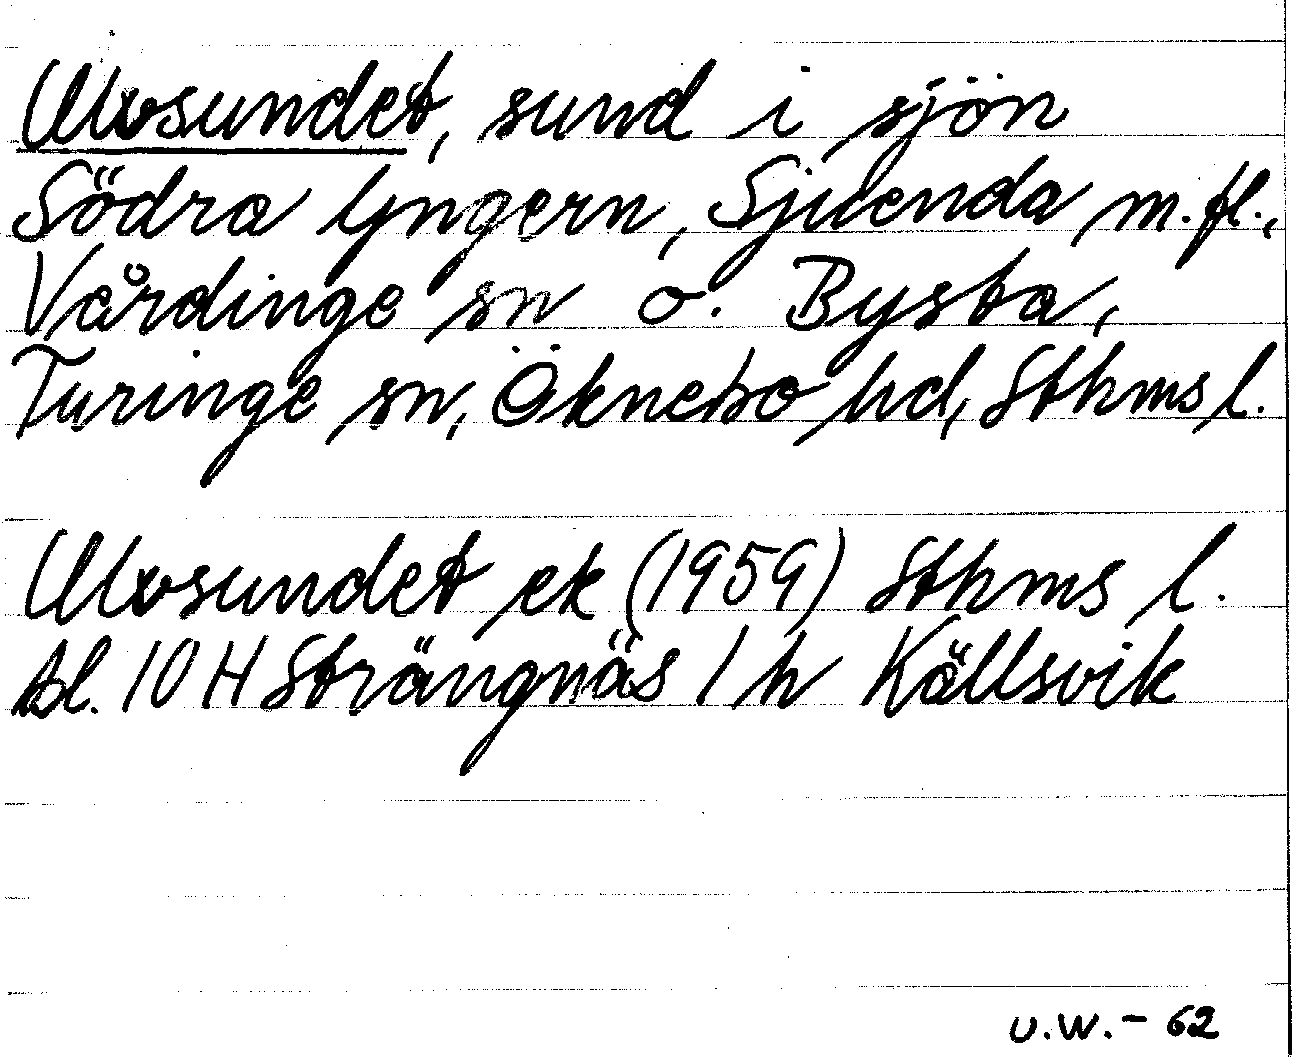 Ulvsundet, sund i sjön
Södra Yngern, Sjuenda m.fl.,
Vårdinge sn o. Bysta,
Turinge sn, Öknebo hd, Sthms l.
Ulvsundet ek (1959) Sthms l.
bl. 10 H Strängnäs 1 h Källsvik
U.W. - 62